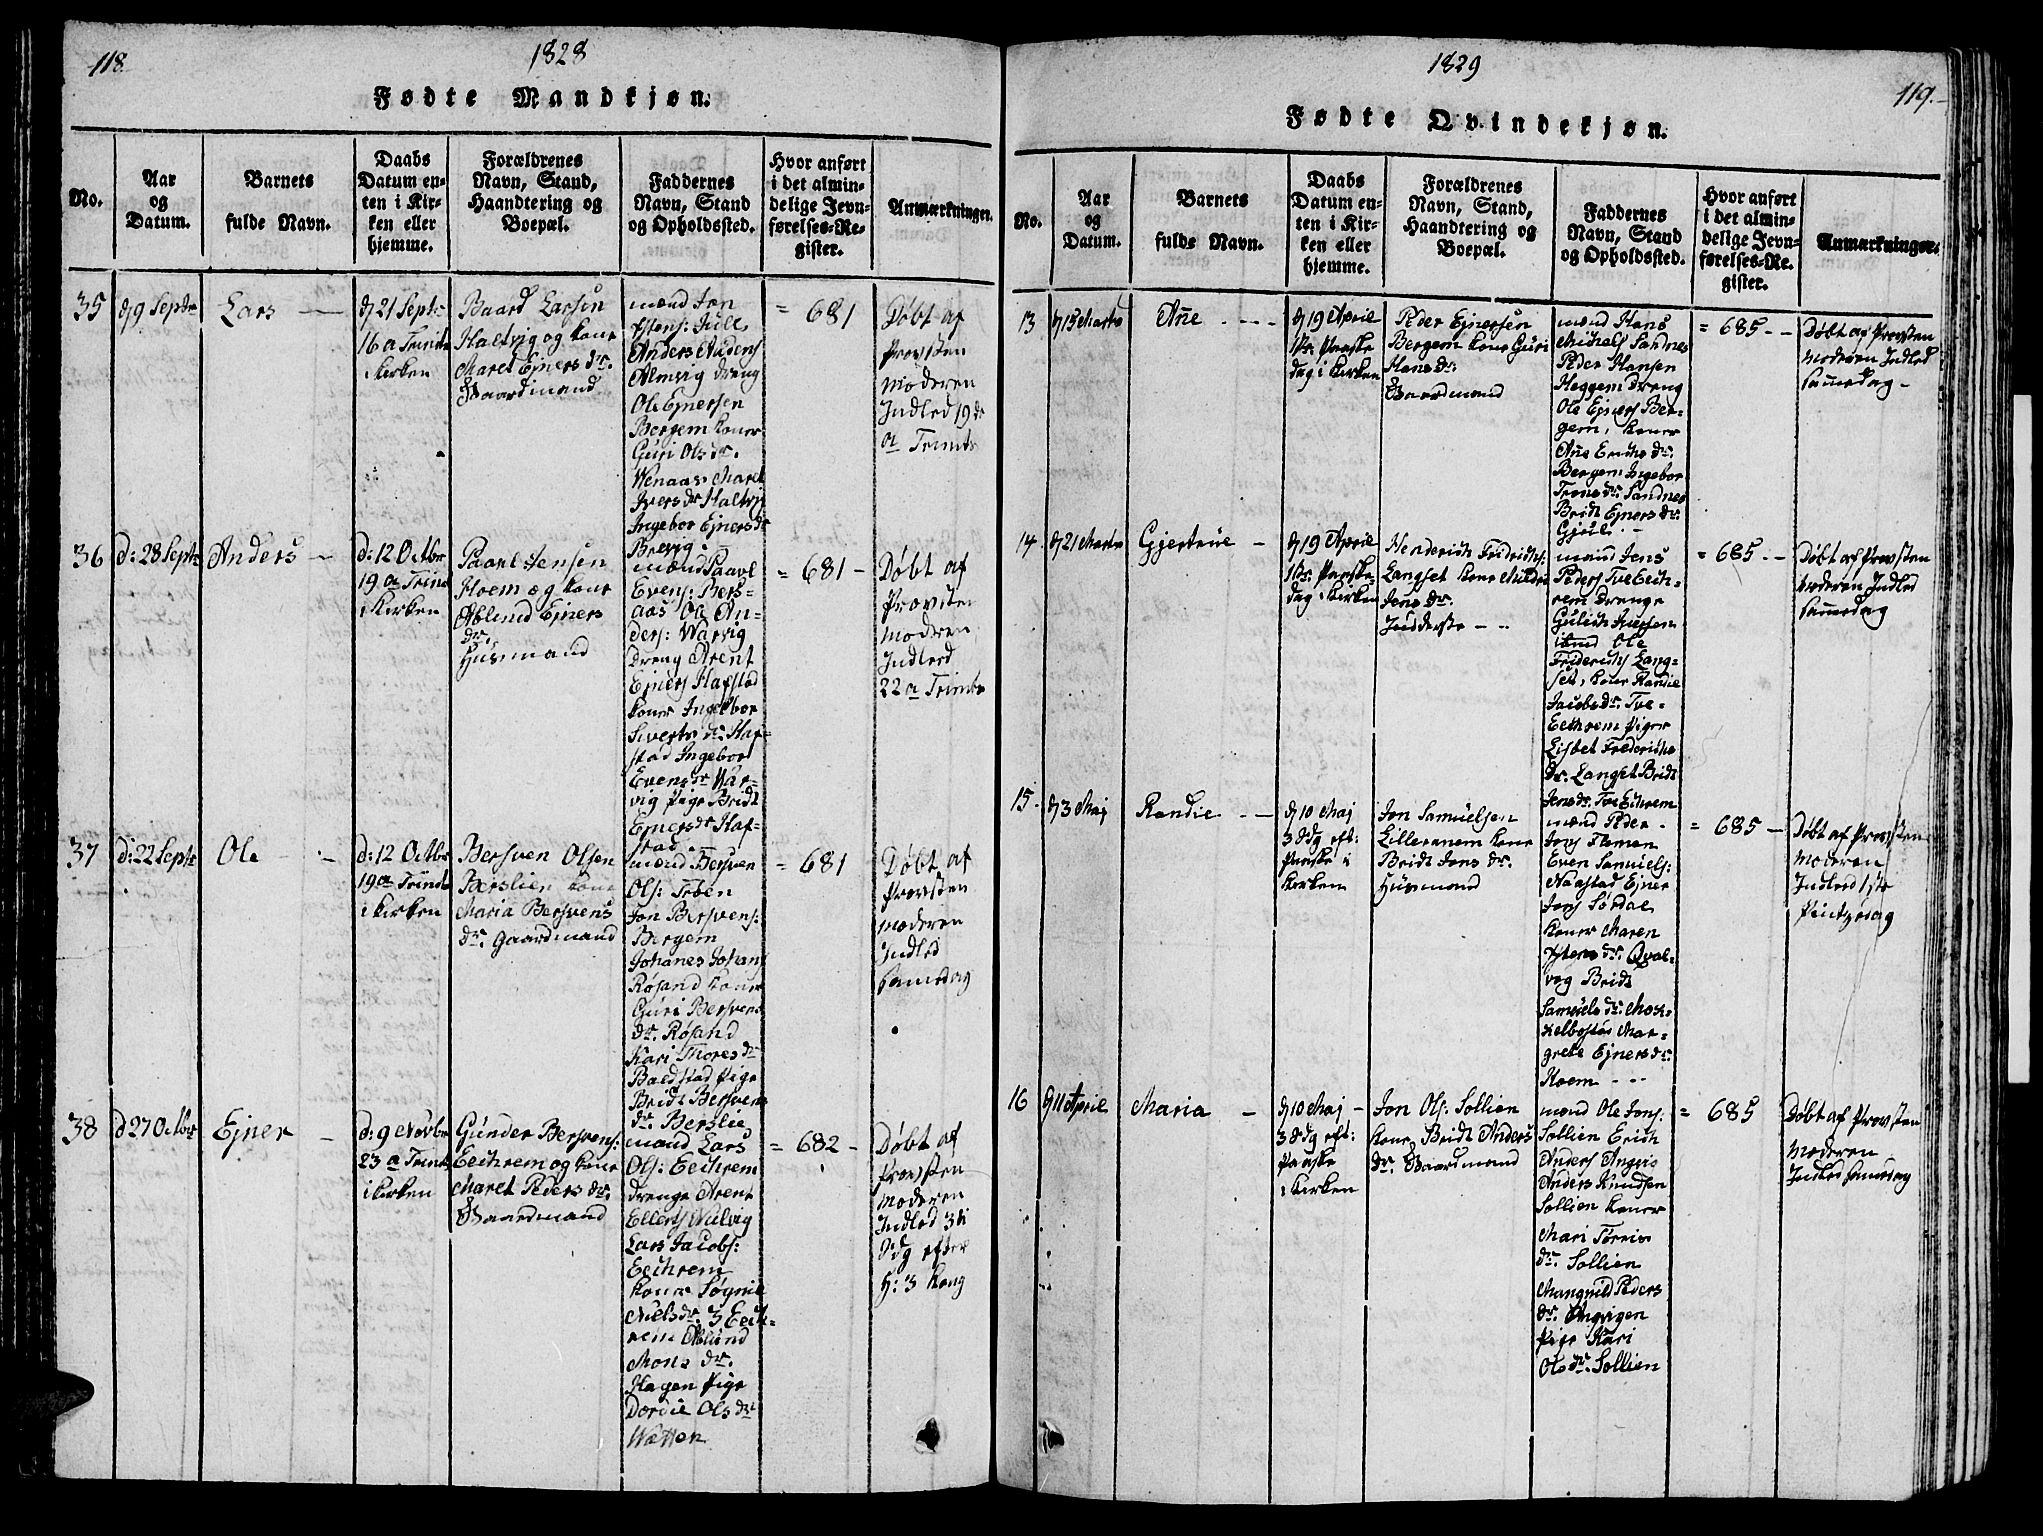 118.
1828
Fødte Mandkjøn.
No.
Aar
og
Datum.
Barnets
fulde Navn.
Daabs
Datum en-
ten i Kir-
ken eller
hjemme.
Forældrenes
Navn, Stand,
Haandtering og
Boepæl.
Faddernes
Navn, Stand
og Opholdssted.
Hvor anført
i det almin-
delige Jevn-
førelses-Re-
gister.
Anmærkninger.
35
d 9 Septbr
Lars
d 21 Septr
16 a Trinit
i Kirken
Baard Larsen
Haltvig og kone
Maret Ejners dr.
Gaardmand
mænd Jon
Estens: Jull
Anders Audens
Almvig dreng
Ole Ejnersen
Bergem koner
Guri Ols dr.
Wenaas Maret
Ivers dr Haltvig
Ingebor Ejners dr
Brevig.
= 681
Døbt af
Provsten
Moderen
Indled 19de
a Trinits
36
d: 28 Septr
Anders
d: 12 Octbr
19 a Trinit
i Kirken
Paavl Jensen
Hoem og kone
Ablund Ejners
dr.
Husmand
mænd Paavl
Evens: Bers-
aas Ole An-
ders: Warvig
dreng Arent
Ejners Hafstad
koner Ingebor
Siverts dr. Haf-
stad Ingebor
Evens dr War-
vig Pige Bridt
Ejners dr Haf-
stad.
= 681 -
Døbt af
Provsten
Moderen
Indled
22 a Trinits
37
d: 22 Septr
Ole
d: 12 Octbr
19 a Trinit
i Kirken
Bersven Olsen
Berslien kone
Maria Bersvens
dr. Gaardmand
mænd Bersven
Ols: Trben
Jon Bersvens:
Bergem
Johanes Johans
Røsand koner
Guri Bersvens
dr. Røsand
Kari Thores dr
Boldstad Pige
Bridt Bersvens
dr. Berslie
= 681
Døbt af
Provsten
Moderen
Indled
samedag
38
d 27 Octbr
Ejner
d: 9 Novbr
23 a Trinit
i Kirken
Gunder Bersvens:
Eechrem og kone
Maret Peders dr.
Gaardmand
mænd Lars
Ols: Eechrem
drenge Arent
Ellers Wulvig
Lars Jacobs:
Eechrem
koner Søgnie
Niels dr. 3 Eech-
rem Ablund
Mons dr.
Hagen Pige
Dordie Ols dr
Watten
= 682 -
Døbt af
Provsten
Moderen
Indled 3di
Sdg efter
H: 3 Kong
1829
119.
Fødte Qvindekjøn.
No.
Aar
og
Datum.
Barnets
fulde Navn.
Daabs
Datum en-
ten i Kir-
ken eller
hjemme.
Forældrenes
Navn, Stand,
Haandtering og
Boepæl.
Faddernes
Navn, Stand
og Opholdssted.
Hvor anført
i det almin-
delige Jevn-
førelses-Re-
gister.
Anmærkninger.
13
d 15 Marts
Añe
d 19 Aprile
1ste Paaske
dag i Kirken
Peder Ejnersen
Bergem kone Guri
Hans dr.
Gaardmand
mænd Hans
Michels Sandnes
Peder Hansen
Heggem dreng
Ole Ejners Ber-
gem, koner
Añe Erichs dr.
Bergem Ingebor
Trons dr. Sandnes
Bridt Ejners dr.
Gjul.
= 685 -
Døbt af Provsten
Moderen Indled
samedag -
14
d 21 Marts
Gjertrue
d 19 Aprile
1ste Paaske
dag i Kirken
Henderich Fridrichs:
Langset kone Mildrid
Jens dr.
Inderste
mænd Jens
Peders Tveeech-
rem drenge
Gulich Iversen
Ole
Friderichs Lang-
set, koner Randie
Jacobs dr. Tve-
Eechrem Piger
Lisbet Frederichs
dr. Langset Bridt
Jens dr. Tveechrem
= 685 -
Døbt af Provsten
Moderen Indled
samedag
15
d 3 Maj
Randie
d 10 Maj
3 Sdg eft:
Paaske i
Kirken
Jon Samuelsen
Lilleranem kone
Bridt Jons dr.
Husmand
mænd Peder
Jons Flemen
Even Samuels:
Naastad Ejner
Jons Sørdal
koner Maren
Estens dr. Qval-
vog Bridt
Samuels dr. Mos-
kelbostøs Mar-
grete Ejners dr.
Hoem
= 685 -
Døbt af Provsten
Moderen
Indled 1ste
Pintsedag
16
d 11 Aprile
Maria
d 10 Maj
3 Sdg eft:
Paaske
i Kirken
Jon Ols: Sollien
kone Bridt Anders
dr. Gaardmand
mænd Ole Jons:
Sollien Erich
Anders Angvig
Anders Knudsen
Sollien koner
Mari Torris
dr. Sollien
Mangnild Peders
dr. Angvigen
Pige Kari
Ols dr. Sollien
= 685
Døbt af Provsten
Moderen
Indled samedag